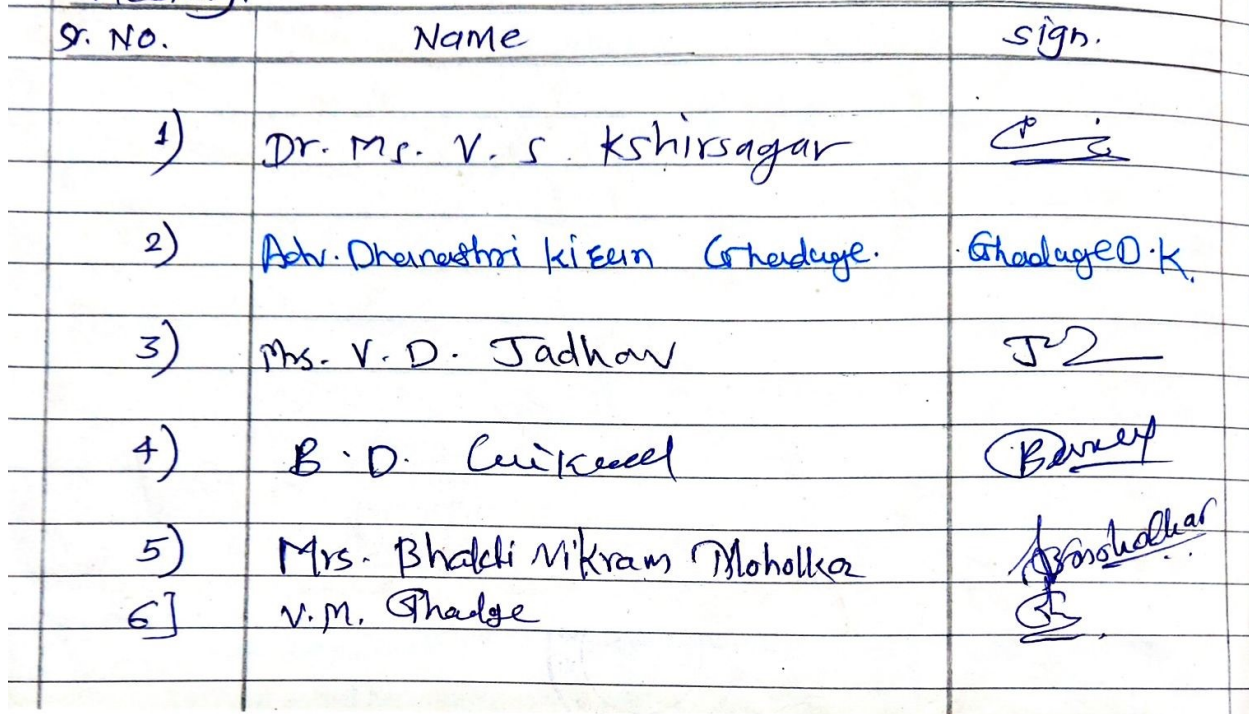 Sr. No. Name sign.
1) Dr. Ms. V. S. Kshirsagar
2) Adv. Dhanashri kisan Ghadage. Ghadage D.K.
3) Mrs. V. D. Jadhav
4) B. D.
5) Mrs. Bhakti Vikram Moholkar
6] V. M. Ghadge